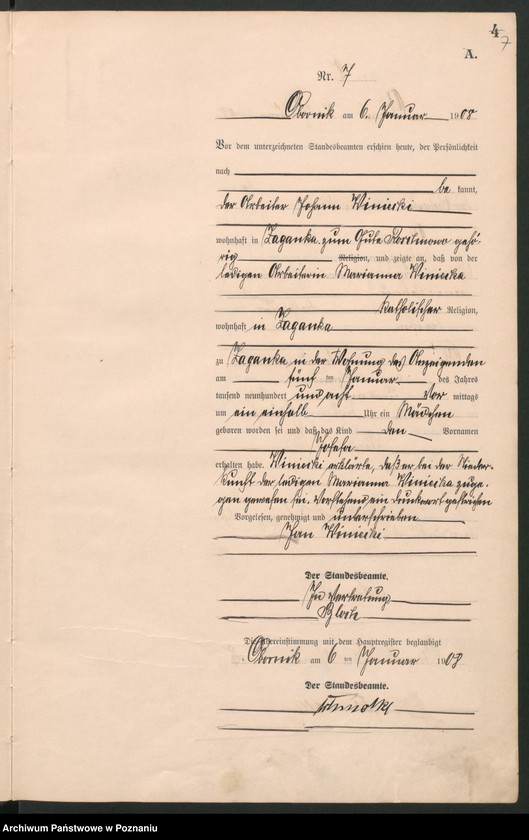 4
7
A.
Nr. 7
Obornik am 6. Januar 1908
Vor dem unterzeichneten Standesbeamten erschien heute, der Persönlichkeit
nach
be kannt,
der Arbeiter Johann Winiecki
wohnhaft in Zaganka zum Gute gehö-
rig Religion, und zeigte an, daß von der
ledigen Arbeiterin Marianna Winiecka
katholischer Religion,
wohnhaft in Zaganka
zu Zaganka in der Wohnung des Anzeigenden
am fünf ten Januar des Jahres
tausend neunhundert und acht Vor mittags
um ein einhalb Uhr ein Mädchen
geboren worden sei und daß das Kind den Vornamen
Josefa
erhalten habe. Winiecki erklärte, daß er bei der Nieder-
kunft der ledigen Marianna Winiecka zuge-
gen gewesen sei. Vorstehend ein Druckwort gestrichen
Vorgelesen, genehmigt und unterschrieben
Jan Winiecki
Der Standesbeamte.
In Vertretung
Die Übereinstimmung mit dem Hauptregister beglaubigt
Obornik am 6 ten Januar 1908
Der Standesbeamte.
Archiwum Państwowe w Poznaniu